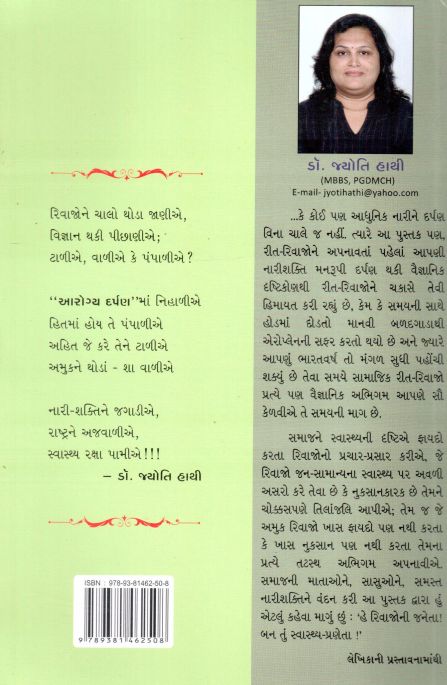 રિવાજોને ચાલો થોડા જાણીએ,
વિજ્ઞાન થકી પીછાણીએ;
ટાળીએ, વાળીએ કે પંપાળીએ ?
“આરોગ્ય દર્પણ”માં નિહાળીએ
હિતમાં હોય તે પંપાળીએ
અહિત જે કરે તેને ટાળીએ
અમુકને થોડાં - શા વાળીએ
નારી-શક્તિને જગાડીએ,
રાષ્ટ્રને અજવાળીએ,
સ્વાસ્થ્ય રક્ષા પામીએ !!!
– ડૉ. જ્યોતિ હાથી
ISBN : 978-93-81462-50-8
9 789381 462508
ડૉ. જ્યોતિ હાથી
(MBBS, PGDMCH)
E-mail- jyotihathi@yahoo.com
...કે કોઈ પણ આધુનિક નારીને દર્પણ
વિના ચાલે જ નહીં. ત્યારે આ પુસ્તક પણ,
રીત-રિવાજોને અપનાવતાં પહેલાં આપણી
નારીશક્તિ મનરૂપી દર્પણ થકી વૈજ્ઞાનિક
દષ્ટિકોણથી રીત-રિવાજોને ચકાસે તેવી
હિમાયત કરી રહ્યું છે, કેમ કે સમયની સાથે
હોડમાં દોડતો માનવી બળદગાડાથી
એરોપ્લેનની સફર કરતો થયો છે અને જ્યારે
આપણું ભારતવર્ષ તો મંગળ સુધી પહોંચી
શક્યું છે તેવા સમયે સામાજિક રીત-રિવાજો
પ્રત્યે પણ વૈજ્ઞાનિક અભિગમ આપણે સૌ
કેળવીએ તે સમયની માગ છે.
સમાજને સ્વાસ્થ્યની દષ્ટિએ ફાયદો
કરતા રિવાજોનો પ્રચાર-પ્રસાર કરીએ, જે
રિવાજો જન-સામાન્યના સ્વાસ્થ્ય પર અવળી
અસરો કરે તેવા છે કે નુકસાનકારક છે તેમને
ચોક્કસપણે તિલાંજલિ આપીએ; તેમ જ જે
અમુક રિવાજો ખાસ ફાયદો પણ નથી કરતા
કે ખાસ નુકસાન પણ નથી કરતા તેમના
પ્રત્યે તટસ્થ અભિગમ અપનાવીએ.
સમાજની માતાઓને, સાસુઓને, સમસ્ત
નારીશક્તિને વંદન કરી આ પુસ્તક દ્વારા હું
એટલું કહેવા માગું છું : ‘હે રિવાજોની જનેતા!
બન તું સ્વાસ્થ્ય-પ્રણેતા !’
લેખિકાની પ્રસ્તાવનામાંથી